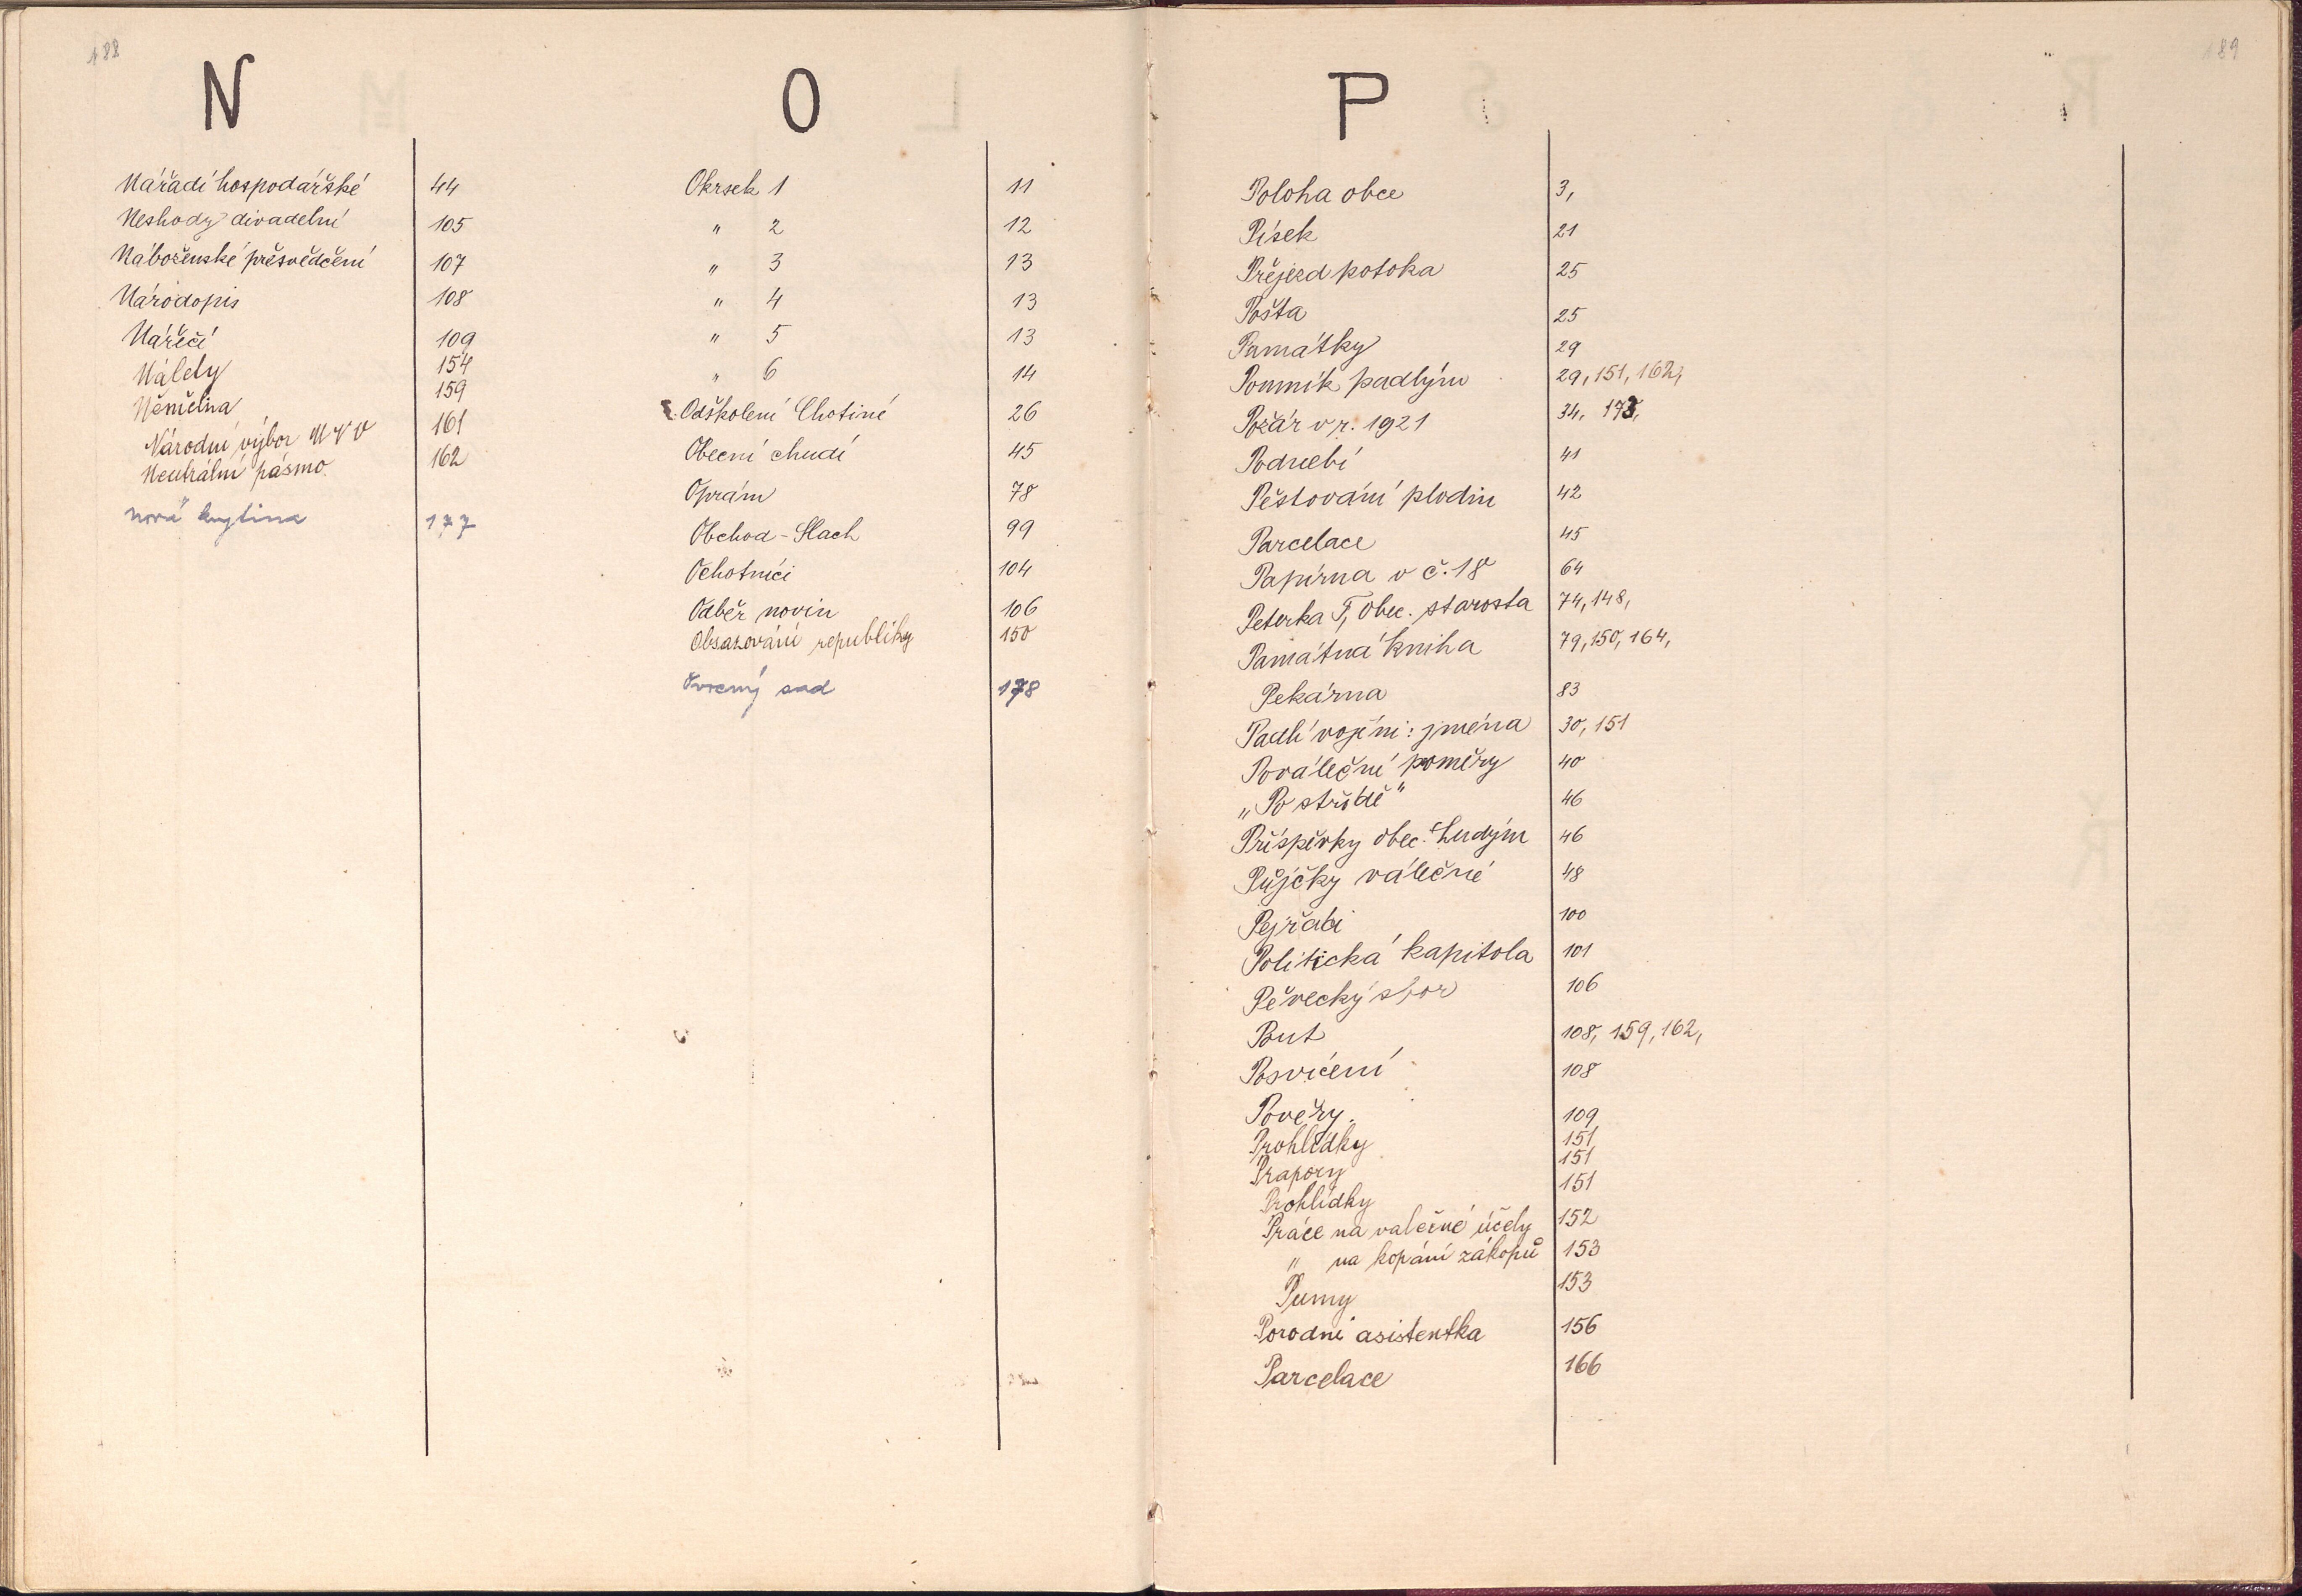 188
N
Nářadí hospodářské 44
Neshody divadelní 105
Náboženské přesvědčení 107
Národopis 108
Nářečí 109
Nálety 154
Němčina 159
Národní výbor MNV 161
Neutrální pásmo 162
nová 177
O
Okrsek 1 11
" 2 12
" 3 13
" 4 13
" 5 13
" 6 14
Odškolení Chotiné 26
Obecní chudí 45
Oprám 78
Obchod - Slach 99
Ochotníci 104
Odběr novin 106
Obsazování republiky 150
Ovocný sad 178
189
P
Poloha obce 3,
Písek 21
Přejezd potoka 25
Pošta 25
Památky 29
Pomník padlým 29, 151, 162,
Požár v r. 1921 34, 178,
Podnebí 41
Pěstování plodin 42
Parcelace 45
Papírna v č. 18 64
Peterka F, obec. starosta 74, 148,
Památná kniha 79, 150, 164,
Pekárna 83
Padlí vojíni: jména 30, 151
Pováleční poměry 40
„Po střídě" 46
Příspěvky obec. chudým 46
Půjčky válečné 48
Pejřáci 100
Politická kapitola 101
Pěvecký sbor 106
Pout 108, 159, 162,
Posvícení 108
Pověry. 109
Prohlídky 151
Prapory 151
Prohlídky 151
Práce na valečné účely 152
" na kopání zákopů 153
Pumy 153
Porodní asistentka 156
Parcelace 166